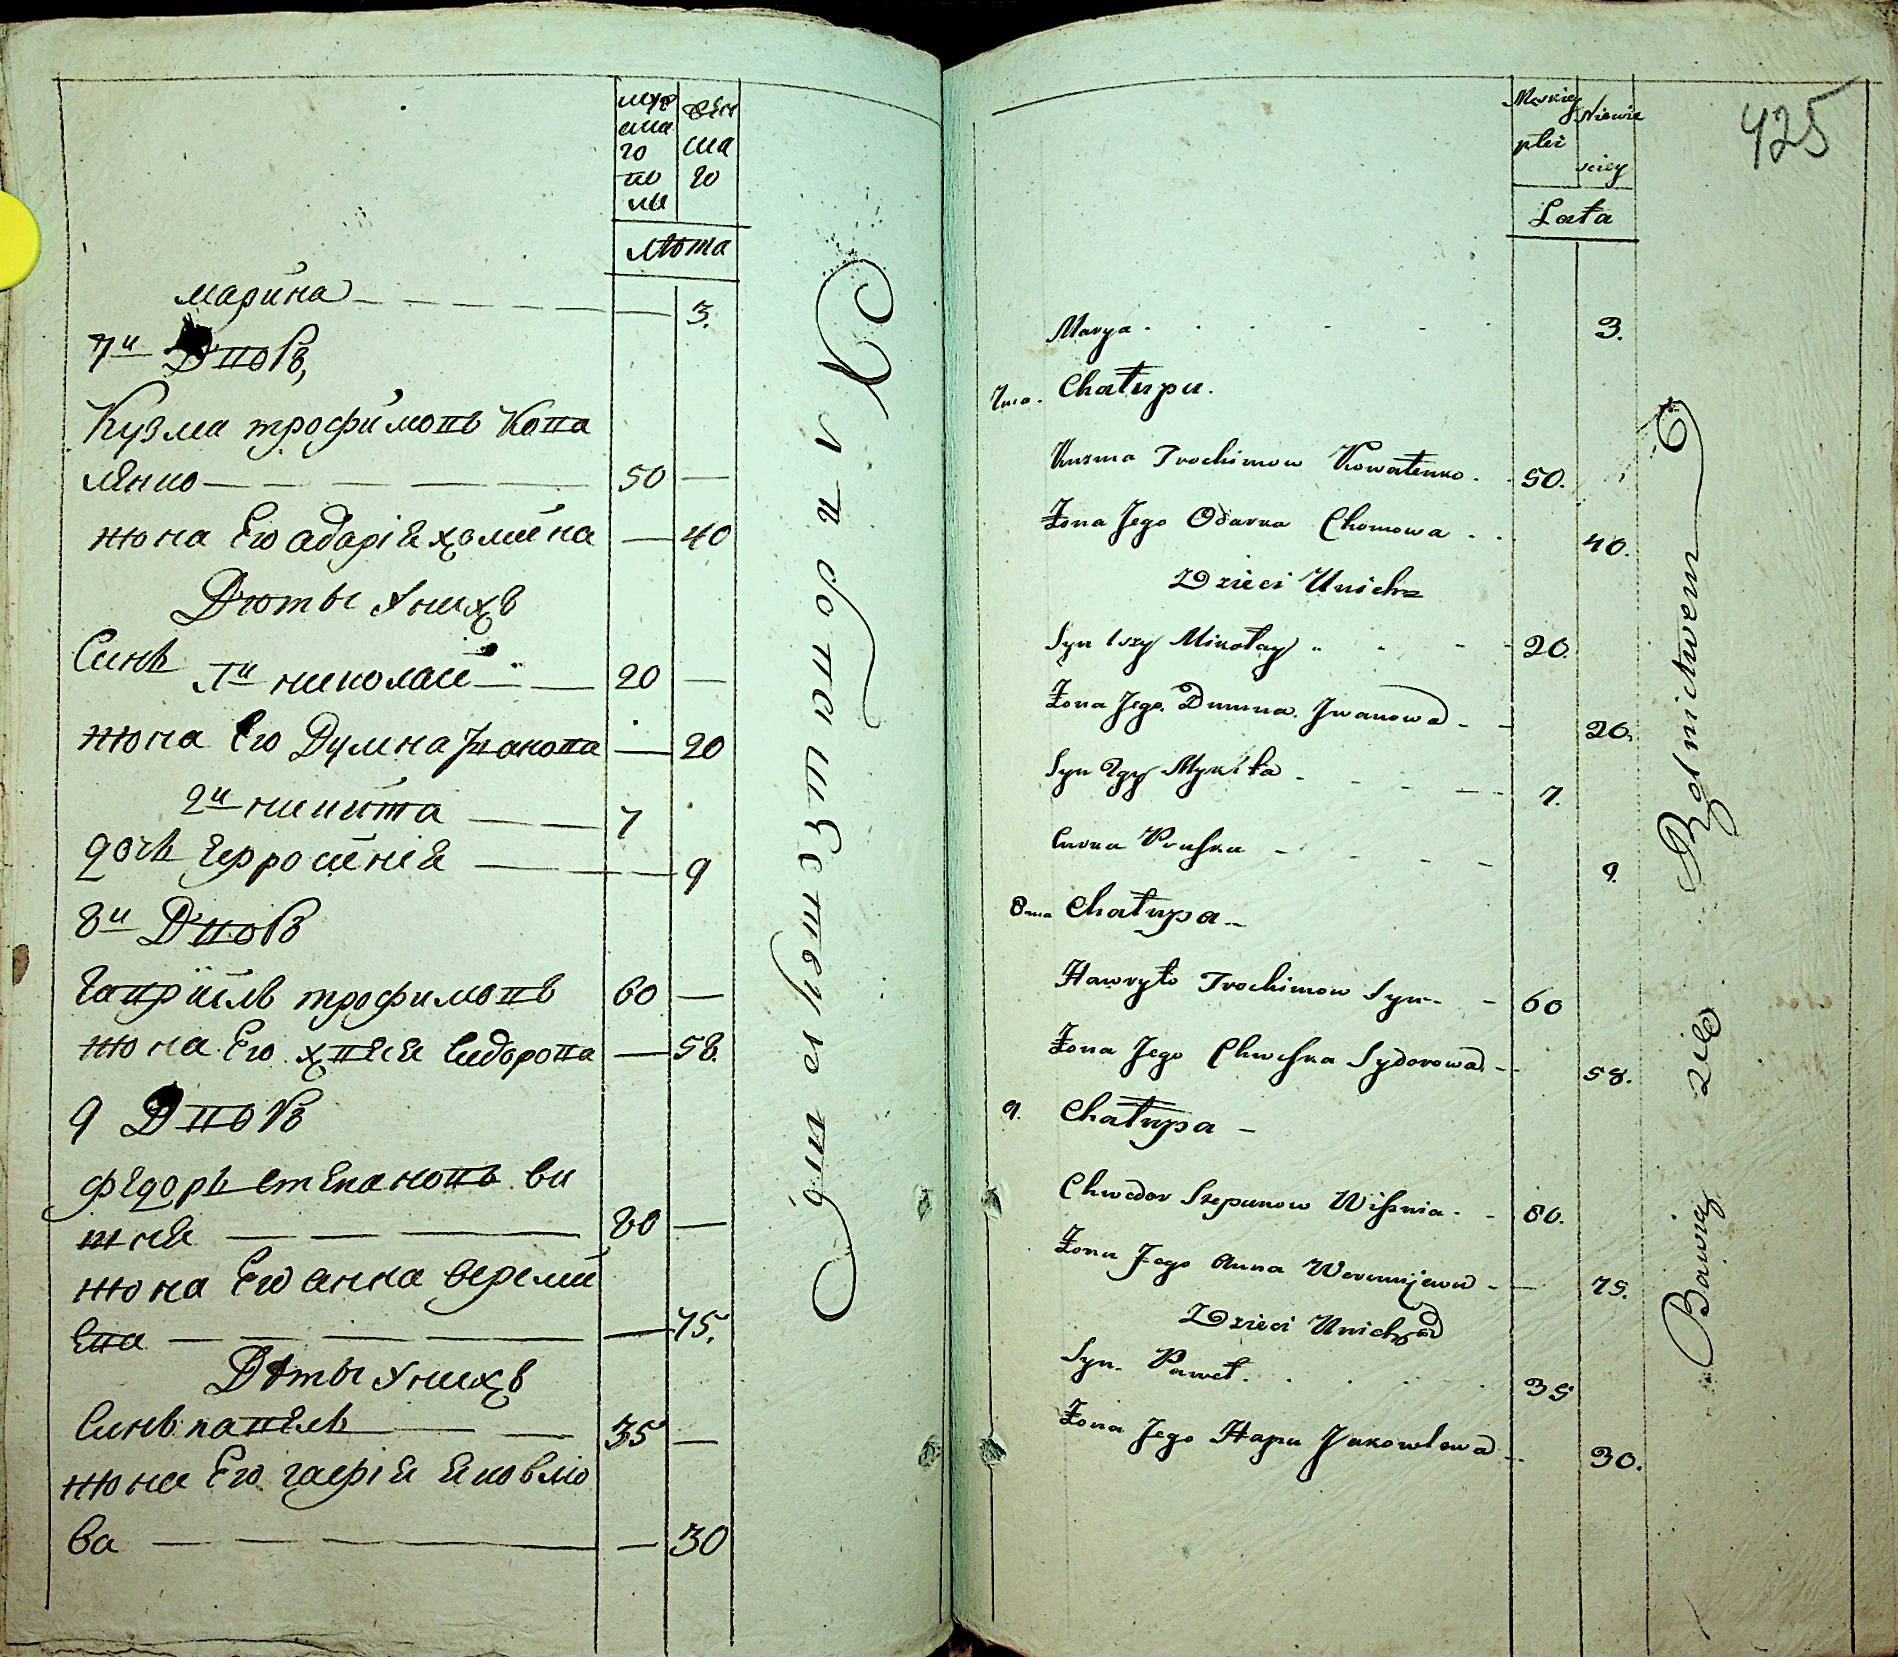 мус
ска
го
по
ла
жен
ска
го
Лѣта
марина 3.
7й Дворъ,
Кузма трофимовъ Кова
ленко 50
жона Его одарія хомина 40
Дѣты У нихъ
Синъ 1й николай 20
жона Его Думна Іванова 20
2й никита 7
дочъ Ефросинія 9
8й Дворъ
гавріилъ трофимовъ 60
жона Его хвеся Сидорова 58.
9 Дворъ
федоръ степановъ ви
шня 80
жона Его анна вереми
Ева 75.
Дѣты У нихъ
Синъ павелъ 35
жона Его гафія Яковлю
ва 30
425
Męskiey
płci
Niewie
sciey
Lata
Marya 3.
7ma. Chałupa.
Kuzma Trochimow Kowalenko. 50.
Żona Jego Odarka Chomowa 40.
Dzieci Unich
Syn 1szy Mikołay 20.
Żona Jego Dumna Jwanowa 20.
Syn 2gy Mykita 7.
Curka Pruska 9.
8ma Chałupa
Hawryło Trochimow Syn 60
Żona Jego Chweska Sydorowa 58.
9. Chałupa
Chwedor Stepanow Wisznia 80.
Żona Jego Anna Weremijewa 75.
Dzieci Unich
Syn Paweł 35
Żona Jego Hapa Jakowlowa 30.
Bawią się Rolnictwem